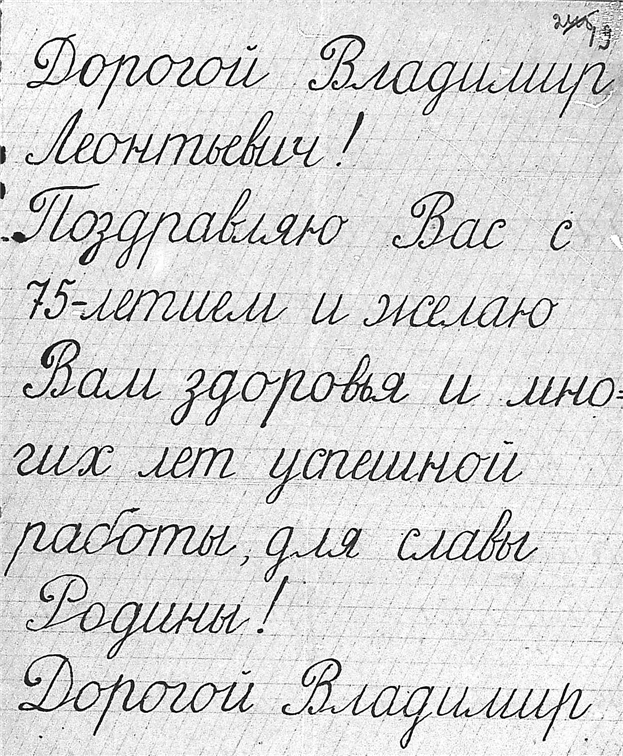 Дорогой Владимир
Леонтьевич!
Поздравляю Вас с
75-летием и желаю
Вам здоровья и мно=
гих лет успешной
работы, для славы
Родины!
Дорогой Владимир